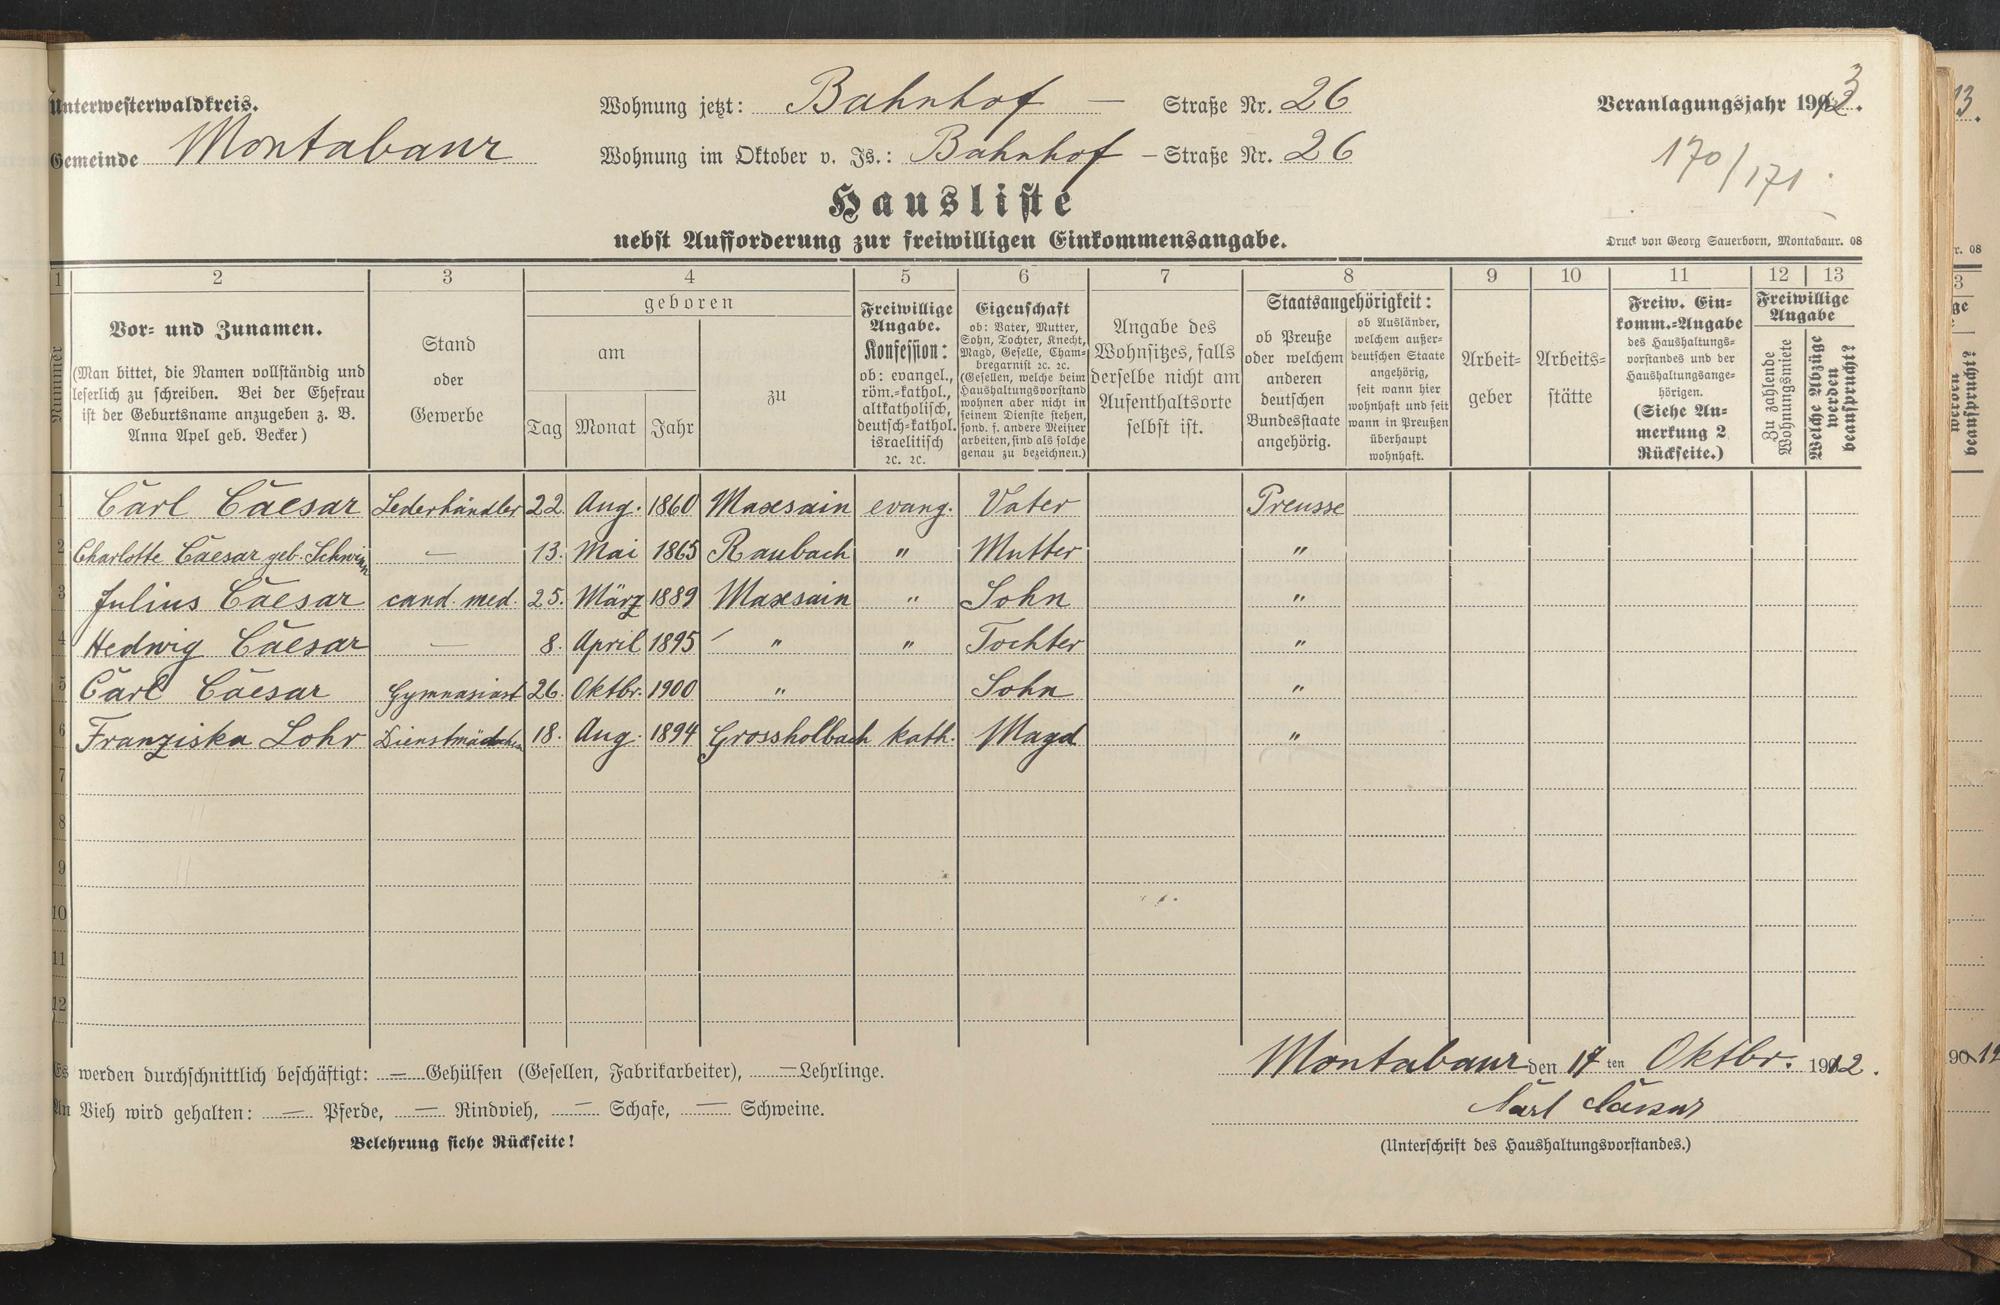 Unterwesterwaldkreis.
Gemeinde Montabaur
Wohnung jetzt: Bahnhof — Straße Nr. 26
Wohnung im Oktober v. Js.: Bahnhof – Straße Nr. 26
Veranlagungsjahr 1913.
170/171
Hausliste
nebst Aufforderung zur freiwilligen Einkommensangabe.
Druck von Georg Sauerborn, Montabaur. 08
1 2 3 4 5 6 7 8 9 10 11 12 13
Nummer
Vor- und Zunamen.
(Man bittet, die Namen vollständig und
leserlich zu schreiben. Bei der Ehefrau
ist der Geburtsname anzugeben z. B.
Anna Apel geb. Becker)
Stand
oder
Gewerbe
geboren
am
Tag Monat Jahr
zu
Freiwillige
Angabe.
Konfession:
ob: evangel.,
röm.-kathol.,
altkatholisch,
deutsch-kathol.
israelitisch
ꝛc. ꝛc.
Eigenschaft
ob: Vater, Mutter,
Sohn, Tochter, Knecht,
Magd, Geselle, Cham-
bregarnist ꝛc. ꝛc.
(Gesellen, welche beim
Haushaltungsvorstand
wohnen aber nicht in
seinem Dienste stehen,
sond. f. andere Meister
arbeiten, sind als solche
genau zu bezeichnen.)
Angabe des
Wohnsitzes, falls
derselbe nicht am
Aufenthaltsorte
selbst ist.
Staatsangehörigkeit:
ob Preuße
oder welchem
anderen
deutschen
Bundesstaate
angehörig.
ob Ausländer,
welchem außer-
deutschen Staate
angehörig,
seit wann hier
wohnhaft und seit
wann in Preußen
überhaupt
wohnhaft.
Arbeit-
geber
Arbeits-
stätte
Freiw. Ein-
komm.-Angabe
des Haushaltungs-
vorstandes und der
Haushaltungsange-
hörigen.
(Siehe An-
merkung 2
Rückseite.)
Freiwillige
Angabe
Zu zahlende
Wohnungsmiete
Welche Abzüge
werden
beansprucht?
1 Carl Caesar Lederhändler 22. Aug. 1860 Maxsain evang. Vater Preusse
2 Charlotte Caesar geb. Schwinn — 13. Mai 1865 Raubach " Mutter "
3 Julius Caesar cand. med. 25. März 1889 Maxsain " Sohn "
4 Hedwig Caesar — 8. April 1895 " " Tochter "
5 Carl Caesar Gymnasiast 26. Oktbr. 1900 " Sohn "
6 Franziska Lohr Dienstmädchen 18. Aug. 1894 Grossholbach kath. Magd "
7
8
9
10
11
12
Es werden durchschnittlich beschäftigt: — Gehülfen (Gesellen, Fabrikarbeiter), — Lehrlinge.
An Vieh wird gehalten: — Pferde, — Rindvieh, — Schafe, — Schweine.
Belehrung siehe Rückseite!
Montabaur den 17 ten Oktbr. 1912.
Carl Caesar
(Unterschrift des Haushaltungsvorstandes.)